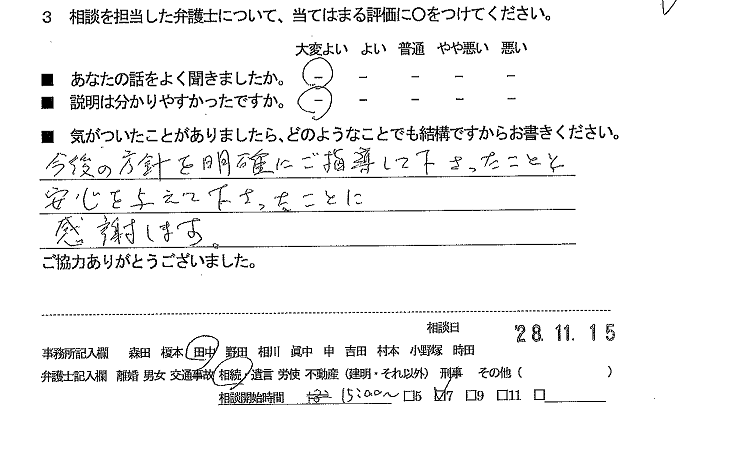 3 相談を担当した弁護士について、当てはまる評価に〇をつけてください。
大変よい よい 普通 やや悪い 悪い
■ あなたの話をよく聞きましたか。 － － － － －
■ 説明は分かりやすかったですか。 － － － － －
■ 気がついたことがありましたら、どのようなことでも結構ですからお書きください。
今後の方針を明確にご指導して下さったことと
安心を与えて下さったことに
感謝します。
ご協力ありがとうございました。
相談日 28.11.15
事務所記入欄 森田 榎本 田中 野田 相川 眞中 申 吉田 村本 小野塚 時田
弁護士記入欄 離婚 男女 交通事故 相続・遺言 労使 不動産（建明・それ以外） 刑事 その他（ ）
相談開始時間 15:00〜 □5 ☑7 □9 □11 □